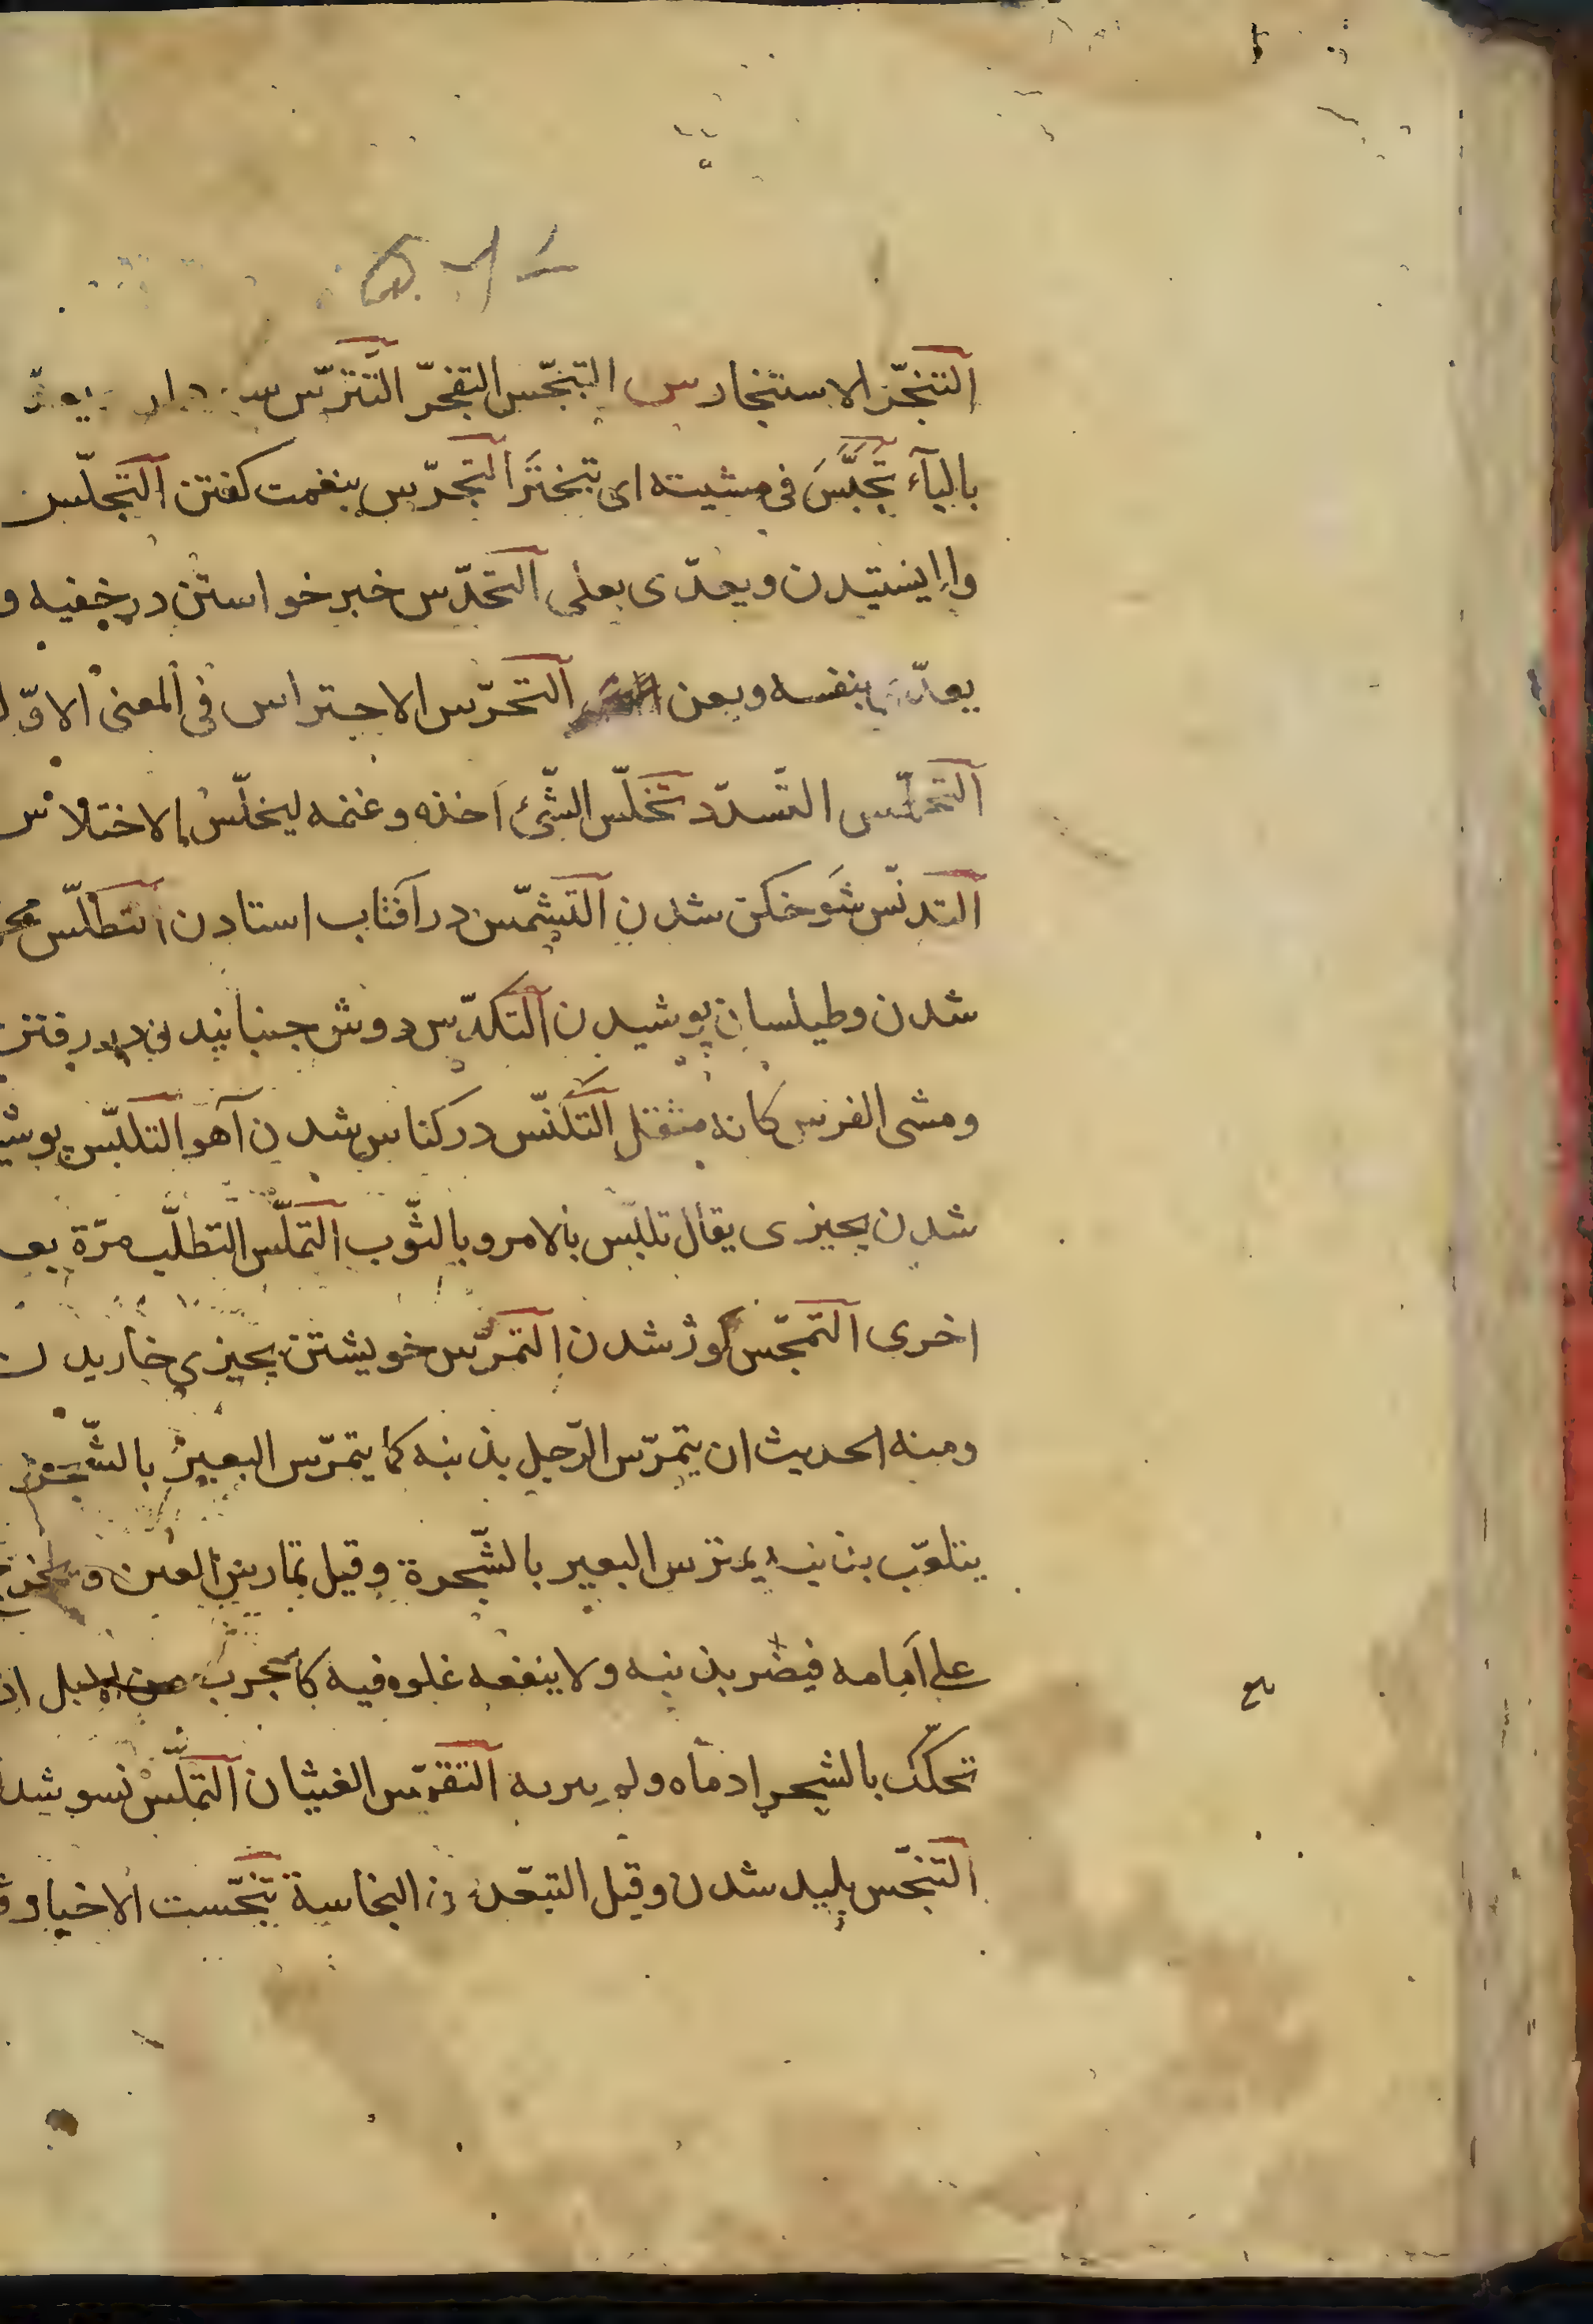 التنجّز الاستنجاز س التبجّس التفجّر التترّس
بالیآء تَجَبَّسَ فی مشیته ای تبختَرَ التجرّس بنغمت کفتن التجلّس
وا ایستیدن ویعدّی بعلی التحدّس خبر خواستن در خفیه و
یعدّی بنفسه وبعن التحرّس الاحتراس فی المعنی الاوّل
التحمّس التشدّد تخلّس الشّئ اخذه وغنمه لیخلّس الاختلاس
التدنّس شَوخکن شدن التشمّس در آفتاب استادن التطلّس
شدن وطیلسان پوشیدن التکدّس دوش جنبانیدن در رفتن
ومشی الفرس کانه مثقل التکنّس در کناس شدن آهو التلبّس
شدن بچیزی یقال تلبّس بالامر وبالثّوب التملّس التطلّب مرّة بعد
اخری التمجّس کوژ شدن التمرّس خویشتن بچیزی خاریدن
ومنه الحدیث ان یتمرّس الرّجل بذنبه کما یتمرّس البعیر بالشّجرة
یتلعّب بذنبه یمترس البعیر بالشّجرة وقیل تمارس
علی امامه فیضر بذنبه ولا ینفعه غلوه فیه کالجرب من الابل اذا
تحکّک بالشجر ادماه ولم یبر به التقمّس الغثیان التملّس نسو شدن
التنجّس پلید شدن وقیل التبعّد من النجاسة تنحّست الاخبار
بلغ